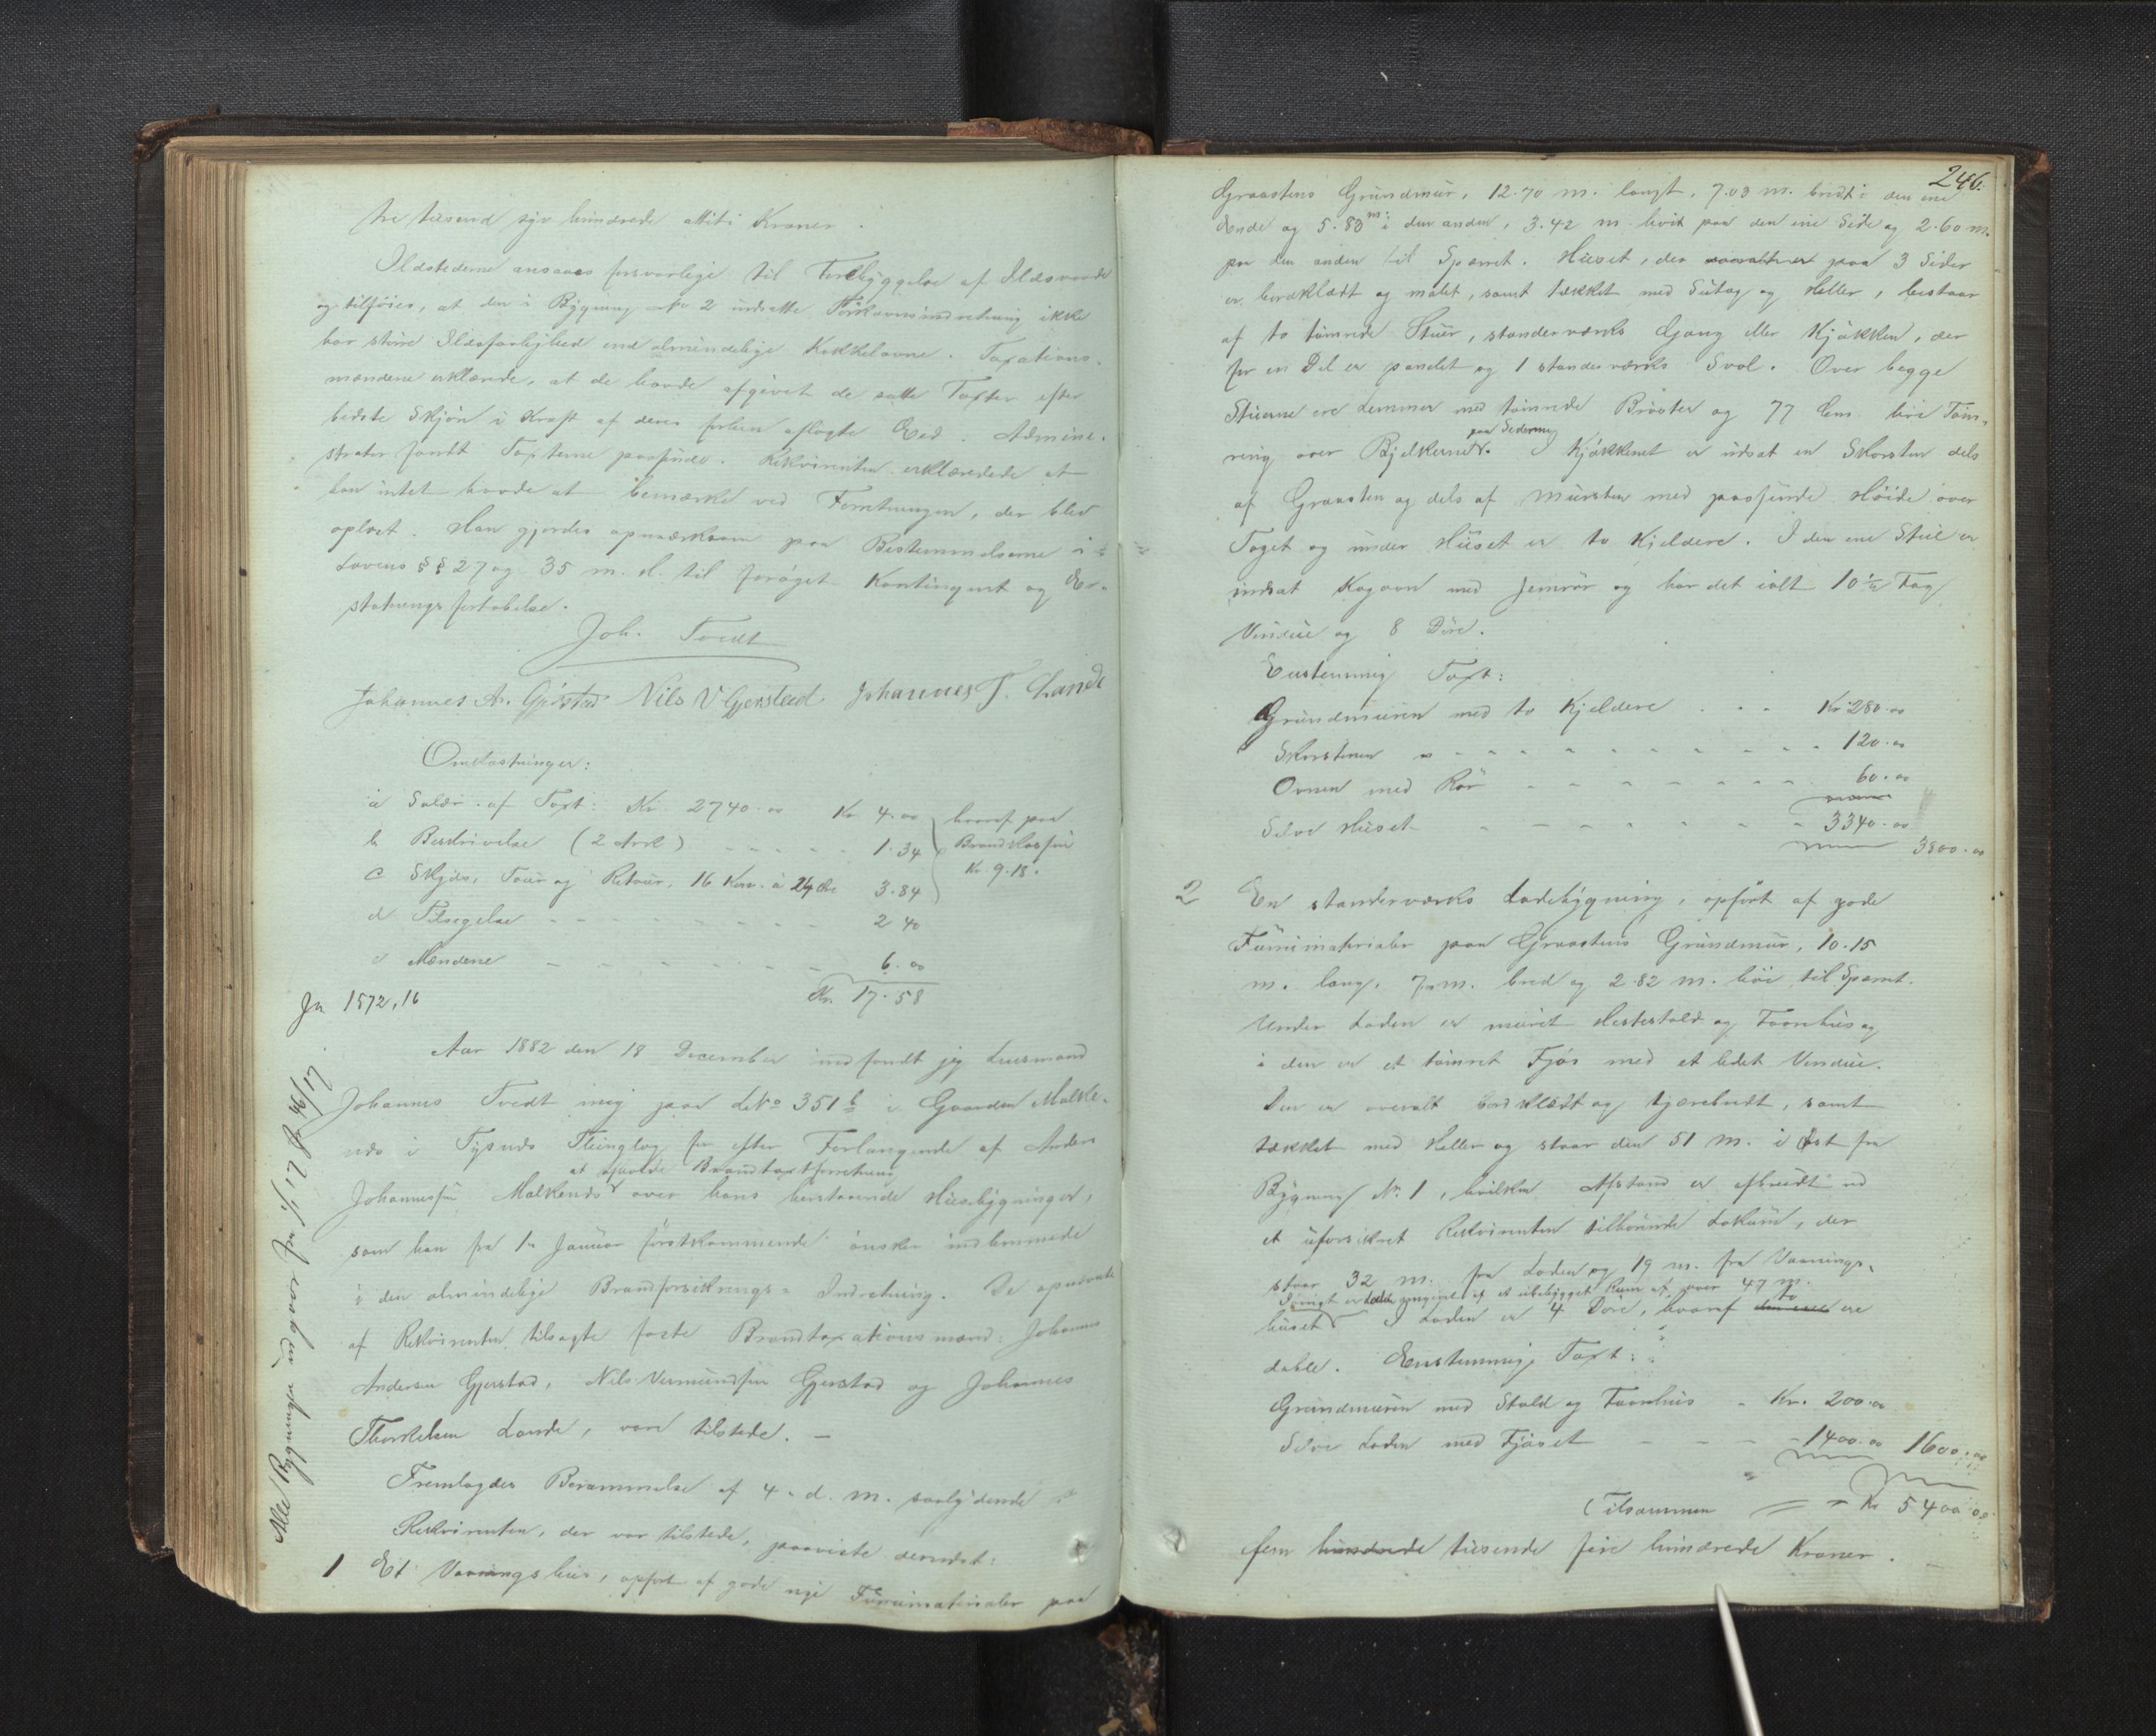 tre tusend syv hundrede otteti Kroner.
Ildstederne ansaaes forsvarlige til Forebyggelse af Ildsvaade
og tilføies, at den i Bygning No 2 indsatte Tørkovnsindretning ikke
har større Ildsfarlighed end almindelige Kakkelovne. Taxations-
mændene erklærede, at de havde afgivet de satte Taxter efter
bedste Skjøn i Kraft af deres forhen aflagte Eed. Admini-
strator fandt Taxterne passende. Rekvirenten erklærede at
han intet havde at bemærke ved Forretningen, der blev
oplæst. Han gjordes opmærksom paa Bestemmelserne i
Lovens §§ 27 og 35 m. H. til forøget Kontingent og Er-
statnings fortabelse.
Joh. Tvedt
Johannes A. Gjerstad Nils V Gjerstad. Johannes T. Lande
Omkostninger:
a Salær af Taxt: Kr. 2740.00 Kr 4.00 hvoraf paa
b Beskrivelse (2 Ark) 1.34 Brandkassen
c Skyds, Tour og Retour, 16 Km. à 24 Øre 3.84 Kr. 9.18.
d Tilsigelse 2 40
e Mændene 6.00
Kr. 17.58
Jn 1572,16
Aar 1882 den 18 December indfandt jeg Lensmand
Johannes Tvedt mig paa LNo 351 b i Gaarden Malke-
næs i Tysnæs Thinglag for efter Forlangende af Anders
at afholde Brandtaxtforretning
Johannessen Malkenæs over hans herstaaende Husebygninger,
som han fra 1ste Januar førstkommende ønsker indlemmede
i den almindelige Brandforsikrings-Indretning. De opnævnte
af Rekvirenten tilsagte faste Brandtaxationsmænd: Johannes
Andersen Gjerstad, Nils Vermundsen Gjerstad og Johannes
Thorkelsen Lande, vare tilstede. –
Fremlagdes Berammelse af 4. d. M. saalydende
Rekvirenten, der var tilstede, paaviste derefter:
1 Et Vaaningshus, opført af gode nye Furumaterialer paa
Alle Bygninger udgaaet fra 1/1 12
246.
Graastens Grundmur, 12.70 m. langt, 7.03 m. bredt i den ene
Ende og 5.83 m. i den anden, 3.42 m. høit paa den ene Side og 2.60 m.
paa den anden til Sparret. Huset, der paa 3 Sider
er bordklædt og malet, samt tækket med Sutag og Heller, bestaar
af to tømrede Stuer, standerværks Gang eller Kjøkken, der
for en Del er panelet og 1 standerværks Sval. Over begge
Stuerne ere Lemmer med tømrede Brøster og 77 Cm. høi Tøm-
paa Siderne
ring over Bjelkerne. I Kjøkkenet er indsat en Skorsten dels
af Graasten og dels af Mursten med passende Høide over
Taget og under Huset er to Kjeldere. I den ene Stue er
indsat Kogovn med Jernrør og har det ialt 10 1/2 Fag
Vindue og 8 Døre.
Eenstemmig Taxt:
Grundmuren med to Kjeldere Kr 280.00
Skorstenen 120.00
Ovnen med Rør 60.00
Selve Huset 3340.00
3800.00
2 En standerværks Ladebygning, opført af gode
Furumaterialer paa Graastens Grundmur, 10.15
m. lang, 7 m. bred og 2.82 m. høi til Sparret.
Under Laden er muret Hestestald og Foorhus og
i den er et tømret Fjøs med et lidet Vindue.
Den er overalt bordklædt og tjærebredt, samt
tækket med Heller og staar den 51 m. i Øst fra
Bygning No. 1, hvilken Afstand er afbrudt ved
et uforsikret Rekvirenten tilhørende Lokum, der
staar 32 m. fra Laden og 19 m. fra Vaanings-
Iøvrigt er Laden omgivet af et ubebygget Rum af over 47 m.
huset. I Laden er 4 Døre, hvoraf to ere
doble. Eenstemmig Taxt:
Grundmuren med Stald og Foorhus - Kr. 200.00
Selve Laden med Fjøset 1400.00 1600.00
Tilsammen Kr 5400.00
fem hundrede tusende fire hundrede Kroner.